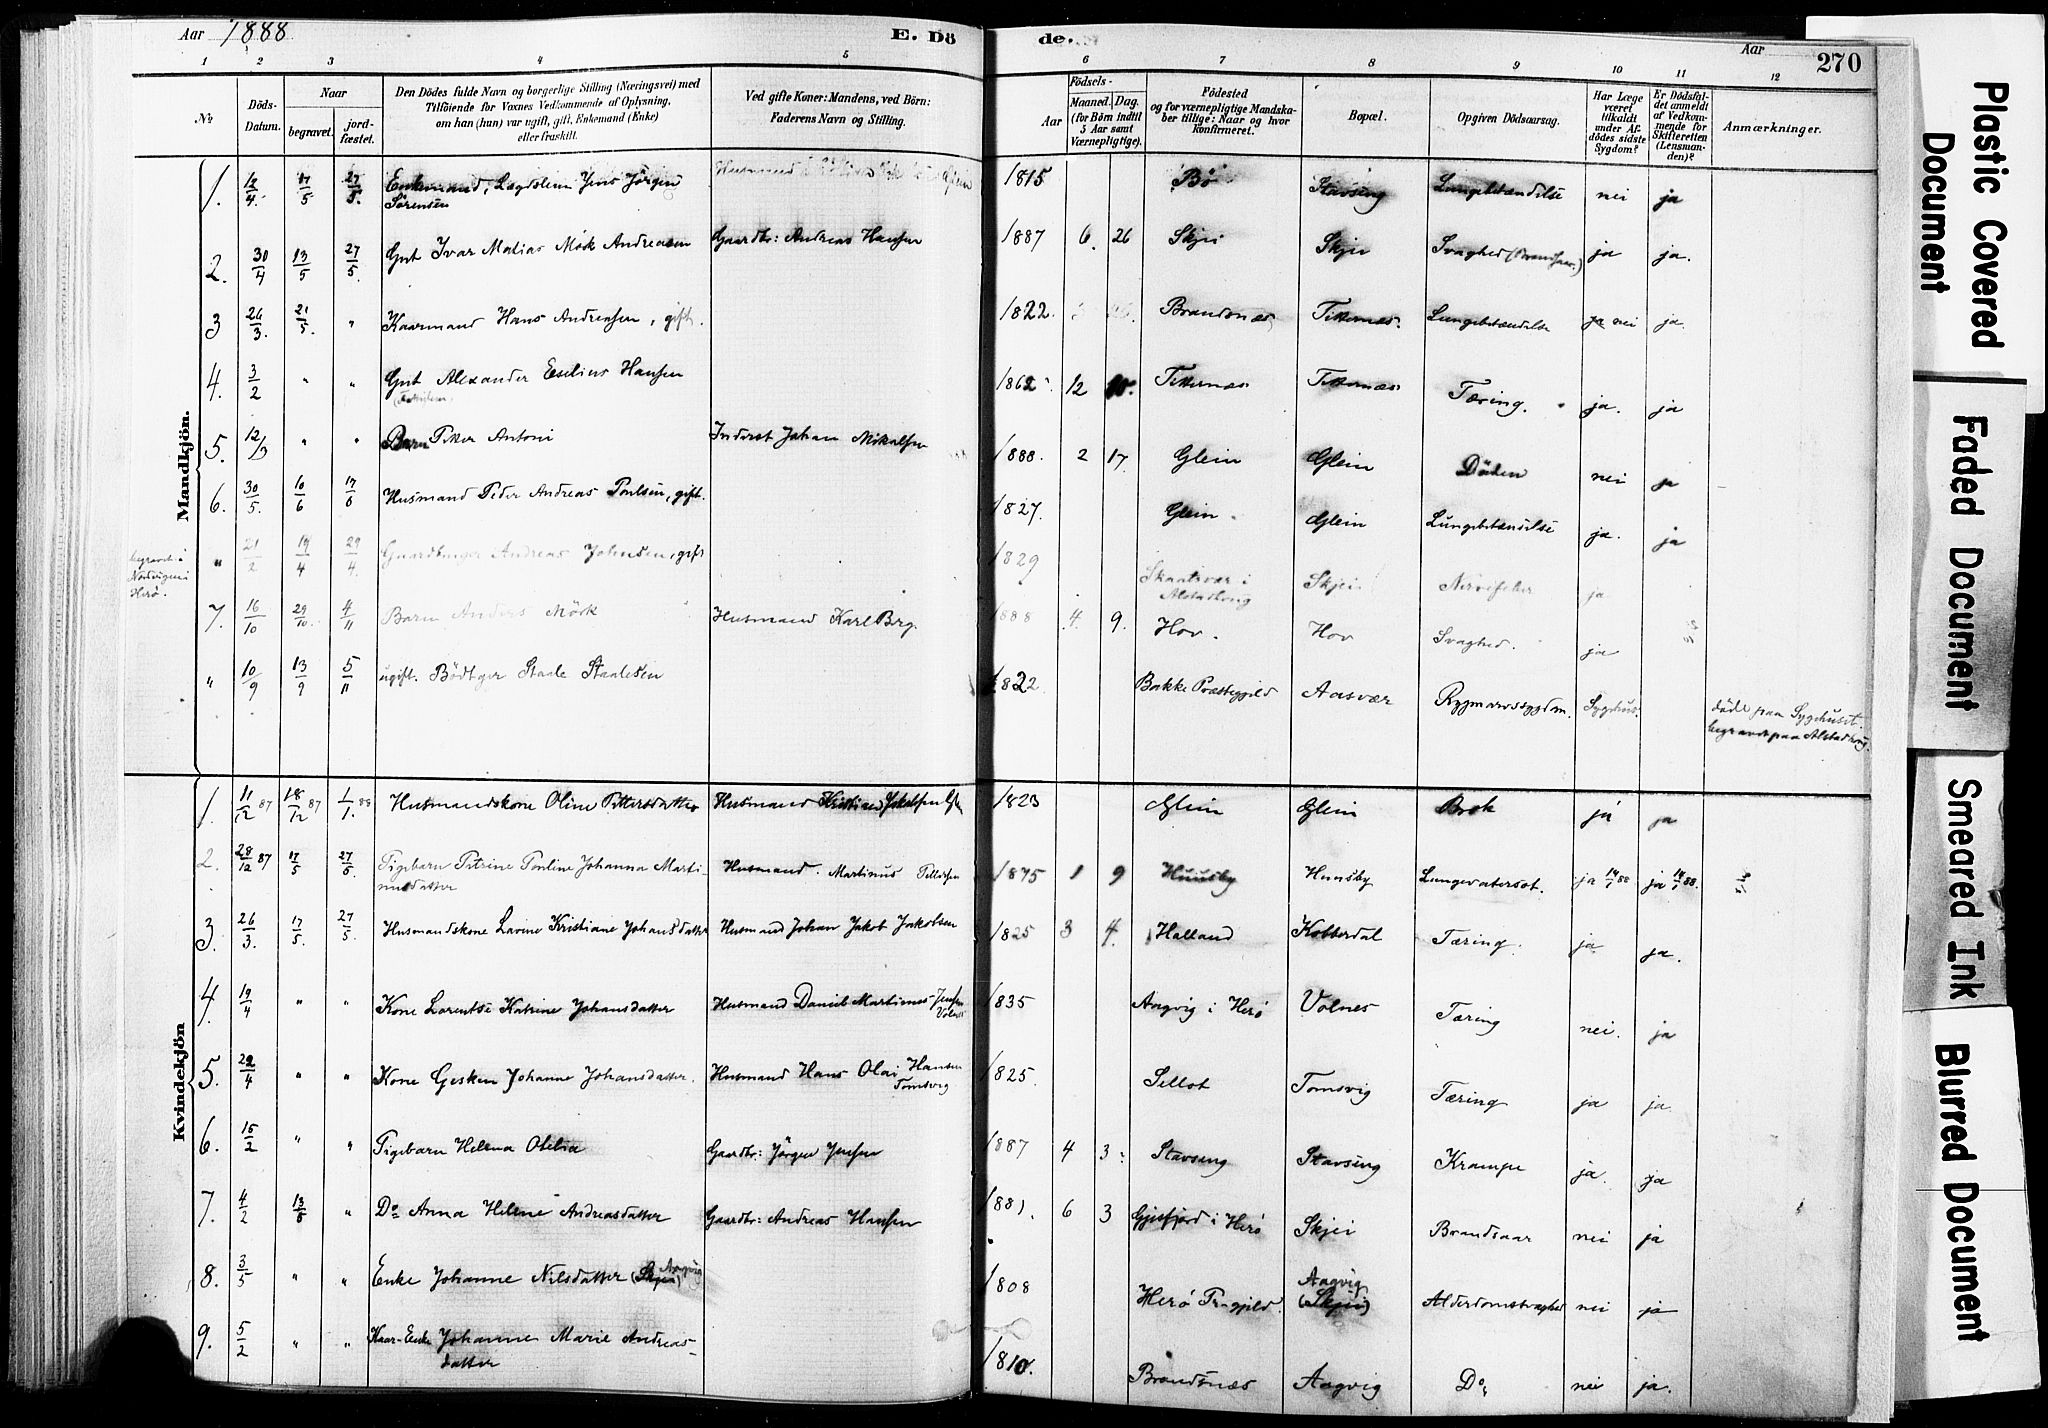 Aar 1888
E. Dö
de.
Aar
270
1 2 3 4 5 6 7 8 9 10 11 12
No
Döds-Datum.
Naar
begravet.
jord-fæstet.
Den Dödes fulde Navn og borgerlige Stilling (Næringsvei) med
Tilföiende for Voxnes Vedkommende af Oplysning,
om han (hun) var ugift, gift, Enkemand (Enke)
eller fraskilt.
Ved gifte Koner: Mandens, ved Börn:
Faderens Navn og Stilling.
Födsels-
Aar
Maaned. Dag.
(for Börn indtil
5 Aar samt
Værnepligtige).
Födested
og for værnepligtige Mandska-
ber tillige: Naar og hvor
konfirmeret.
Bopæl.
Opgiven Dödsaarsag.
Har Læge
været
tilkaldt
under Af-
dödes sidste
Sygdom?
Er Dödsfal-
det anmeldt
af Vedkom-
mende for
Skifteretten
(Lensman-
den)?
Anmærkninger.
Mandkjön.
1. 19/4 17/5 27/5 Enkemand, Lægdslem Jens Jörgen Husmand 1815 Bö Stavseng Lungebetændelse nei ja
Sörensen
2. 30/4 13/5 27/5 Gut Ivar Matias Mörk Andreasen Gaardbr: Andreas Hansen 1887 6 26 Skjei Skjei Svaghed ja ja.
3 26/3. 21/5. " Kaarmand Hans Andreasen, gift. 1822. Brandsnæs Lungebetændelse ja nei ja.
4. 3/2 " " Gut Alexander Hansen 1862 12 Tæring. ja. ja
5. 12/3 " " Barn Antoni Inderst Johan Mikalsen 1888. 2 17. Glein Glein Döden nei ja
6. 30/5. 10/6 17/6 Husmand Peder Andreas Poulsen, gift. 1827. Glein Glein Lungebetændelse ja. ja
begravet i
Herö.
" 21/2 14/4 29/4. Gaardbruger Andreas Johnsen, gift 1829 Skaalvær i Skjei. Nervefeber ja
Alstahaug
7. 16/10 29/10. 4/11 Barn Anders Mörk Husmand Karl Brg. 1888 4. 9. Hov. Hov Svaghed. ja
" 10/9 13/9 5/11 ugift. Bödtger Staale Staalesen 1822 Bakke Præstegjeld Aasvær Rygmarvssygdom. Sygehus.
döde paa Sygehuset.
begravet paa Alstadhoug.
Kvindekjön
1. 11/12 87 18/12 87 1/1. 88 Husmandskone Oline Pettersdatter Husmand 1823 Glein Glein Brok ja ja
2. 28/12 87 17/5 27/5 Pigebarn Petrine Pouline Johanna Marti- Husmand. Martinus 1875 1 9 Huusby Huusby ja 14/1 88 ja 14/1 88.
nusdatter
3. 26/3. 17/5. 27/5. Husmandskone Lavine Kristiane Johansdatter Husmand Johan Jakob Jakobsen 1825 3 4. Halland Kobberdal Tæring. ja ja.
4. 19/4 " " Kone Lorentse Katrine Johansdatter Husmand Daniel Martinus Jensen 1835 Aagvig i Herö Volnes Tæring nei. ja
Volnes
5. 22/4 " " Kone Gesken Johanne Johansdatter. Husmand Hans Olai Hansen 1825. Sellot Tomsvig Tæring ja ja.
Tomsvig
6. 15/2 " " Pigebarn Helena Otelia Gaardbr: Jörgen Jensen 1887 4 3 Stavseng Stavseng Krampe ja. ja
7. 4/2 13/6 " Do Anna Helene Andreasdatter Gaardbr: Andreas Hansen 1881. 6 3 Gjesfjord i Herö Skjei Brandsaar nei ja
8. 3/5 " " Enke Johanne Nilsdatter (Skjei) Aagvig 1808 Herö Pr-gjeld. (Skjei) Aagvig Alderdomssvaghed nei ja
9. 5/2 " " Kaar-Enke Johanne Marie Andreas- 1810. Brandsnæs Aagvig Do nei ja.
datter
Plastic Covered
Document
Faded Document
Smeared Ink
Blurred Document